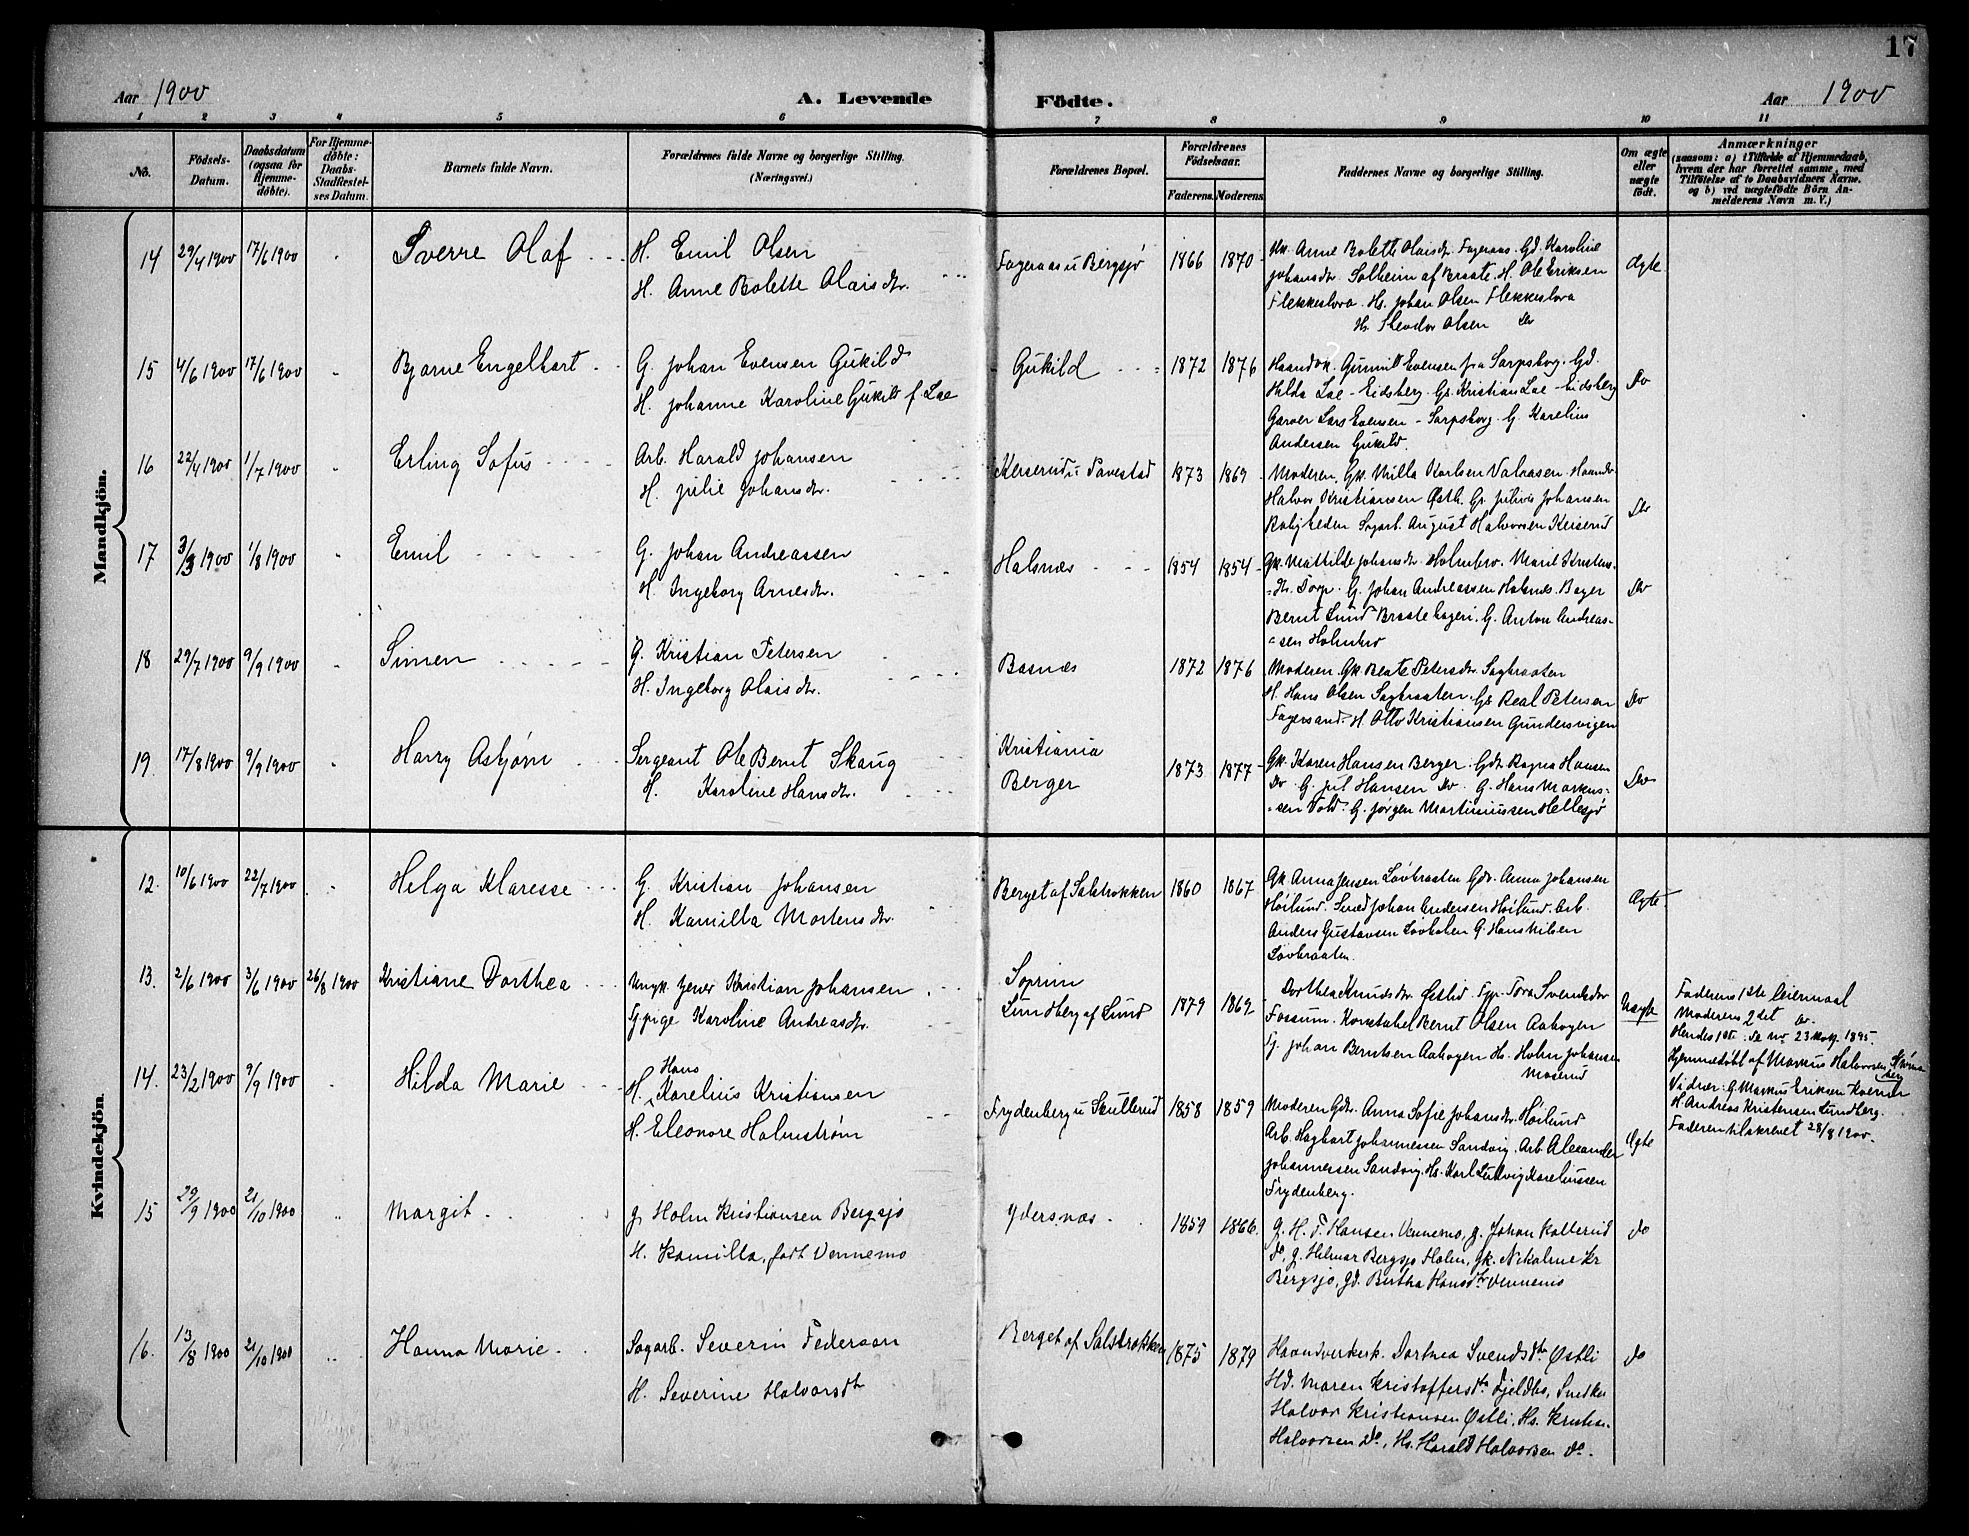 17
Aar 1900
A. Levende
Födte.
Aar 1900
1 2 3 4 5 6 7 8 9 10 11
No.
Födsels-
Datum.
Daabsdatum
(ogsaa for
Hjemme-
döbte).
For Hjemme-
döbte:
Daabs-
Stadfæstel-
ses Datum.
Barnets fulde Navn.
Forældrenes fulde Navne og borgerlige Stilling.
(Næringsvei.)
Forældrenes Bopæl.
Forældrenes
Födselsaar.
Faderens.
Moderens.
Faddernes Navne og borgerlige Stilling.
Om ægte
eller
uægte
födt.
Anmærkninger
(saasom: a) i Tilfælde af Hjemmedaab,
hvem der har forrettet samme, med
Tilföielse af to Daabsvidners Navne.
og b) ved uægtefödte Börn An-
melderens Navn m. V.)
Mandkjön.
14 29/4 1900 17/6 1900 Sverre Olaf
H. Emil Olsen
H. Anne Bolette Olaisdtr.
Fageraas u Bergsjø 1866 1870
Gk. Anne Bolette Olaisdtr. Fageraas. Gd. Karoline
Johansdtr. Solheim af Braate. H. Ole Eriksen
Flekkeslora. Hs. Johan Olsen Flekkeslora
Hs. Theodor Olsen Do
Ægte
15 4/6 1900 17/6 1900 Bjarne Engelhart
G. Johan Evensen Gukild
H. Johanne Karoline Gukild f. Lae
Gukild 1872 1876
Haandvk. Gunnill Evensen fra Sarpsborg. Gd.
Hilda Lae - Eidsberg. Gs. Kristian Lae - Eidsberg
Garver Lars Evensen - Sarpsborg. G. Karelius
Andersen Gukild.
Do
16 22/4 1900 1/7 1900 Erling Sofus
Arb. Harald Johansen
H. Julie Johansdtr.
Keiserud u Tavestad 1873 1869
Moderen, Gk. Milla Karlsen Valaasen. Haandv.
Halvor Kristiansen Østli. Gs. Julius Johansen
Roligheden Sagarb. August Halvorsen Keiserud
Do
17 3/3 1900 1/8 1900 Emil
G. Johan Andreassen
H. Ingeborg Arnesdtr.
Halsnæs 1854 1854
Gk. Mathilde Johansdtr. Holmbro. Marie Kristens-
Hs. Torp. G. Johan Andreassen Halsnæs. Bager
Bernt Lund Braatehageri. G. Anton Andreas-
sen Holmbro
Do
18 29/7 1900 9/9 1900 Simen
G. Kristian Petersen
H. Ingeborg Olaisdtr.
Basnæs 1872 1876
Moderen. Gk. Beate Petersdtr. Sagbraaten
H. Hans Olsen Sagbraaten. Gs. Real Petersen
Fagersand. H. Otto Kristiansen Gundersvigen
Do
19. 17/8 1900 9/9 1900 Harry Asbjørn
Sergeant Ole Bernt Skaug
H. Karoline Hansdtr.
Kristiania
Berger 1873 1877
Gk. Karen Hansen Berger. Gdtr. Ragna Hansen
Do. G. Jul Hansen Do. G. Hans Markus-
sen Vold. G. Jørgen Martiniussen Hellesjø
Do
Kvindekjön.
12. 10/6 1900 22/7 1900 Helga Klaresse
G. Kristian Johansen
H. Kamilla Mortensdtr.
Berget af Salstrokken 1860 1867
Gk. Anna Jensen Løvbraaten Gdtr. Anna Johansen
Høilund. Smed Johan Andersen Høilund. Arb.
Anders Gustavsen Løvbraaten G. Hans Nilsen
Løvbraaten.
Ægte
13. 2/6 1900 3/6 1900 26/8 1900 Kristiane Dorthea
Ungk. Gener Kristian Johansen
Tj.pige Karoline Andreasdtr.
Soprim
Lundberg af Lund 1879 1869
Dorthea Knudsdtr. Østlid. Tjp. Tora Svendsdtr
Fossum. Konstabel Bernt Olsen Aabogen
G. Johan Berntsen Aabogen Hs. Holm Johansen
Moserud
Uægte
Faderens 1ste Leiermaal
Moderens 2det Do.
Hendes 1ste se No 23 Mokg 1895.
Hjemmedøbt af Markus Halvorsen
Vidner: G. Markus Eriksen
H. Andreas Kristensen Lundberg.
Faderen tilskrevet 28/8 1900.
14. 23/2 1900 9/9 1900 Hilda Marie
Hans
H. Karelius Kristiansen
H. Eleonore Holmstrøm
Frydenberg u Skullerud 1858 1859
Moderen Gdtr. Anna Sofie Johansdtr. Høilund
Arb. Hagbart Johannessen Sandvig. Arb. Alexander
Johannessen Sandvig. Hs. Karl Ludvig Kareliussen
Frydenberg.
Ægte
15 29/9 1900 21/10 1900 Margit
G. Holm Kristiansen Bergsjø
H. Kamilla, født Vennemo
Ydersnæs 1859 1866.
G. H. T. Hansen Vennemo, G. Johan Kolterud
Do, G. Hilmar Bergsjø Holm, Gk. Nikoline Kr
Bergsjø, Gd. Bertha Hansdtr Vennemo
do
16. 13/8 1900 21/10 1900 Hanna Marie
Sagarb. Severin Pederson
H. Severine Halvorsdtr
Berget af Salstrokken 1875 1879
Haandverkerk. Dorthea Svendsdtr Østli
Hd. Maren Kristoffersdtr Fjeldbo, Snedker
Halvor Kristiansen Østli, Hs. Kristian
Halvorsen Do., Hs. Harald Halvorsen Do.
do